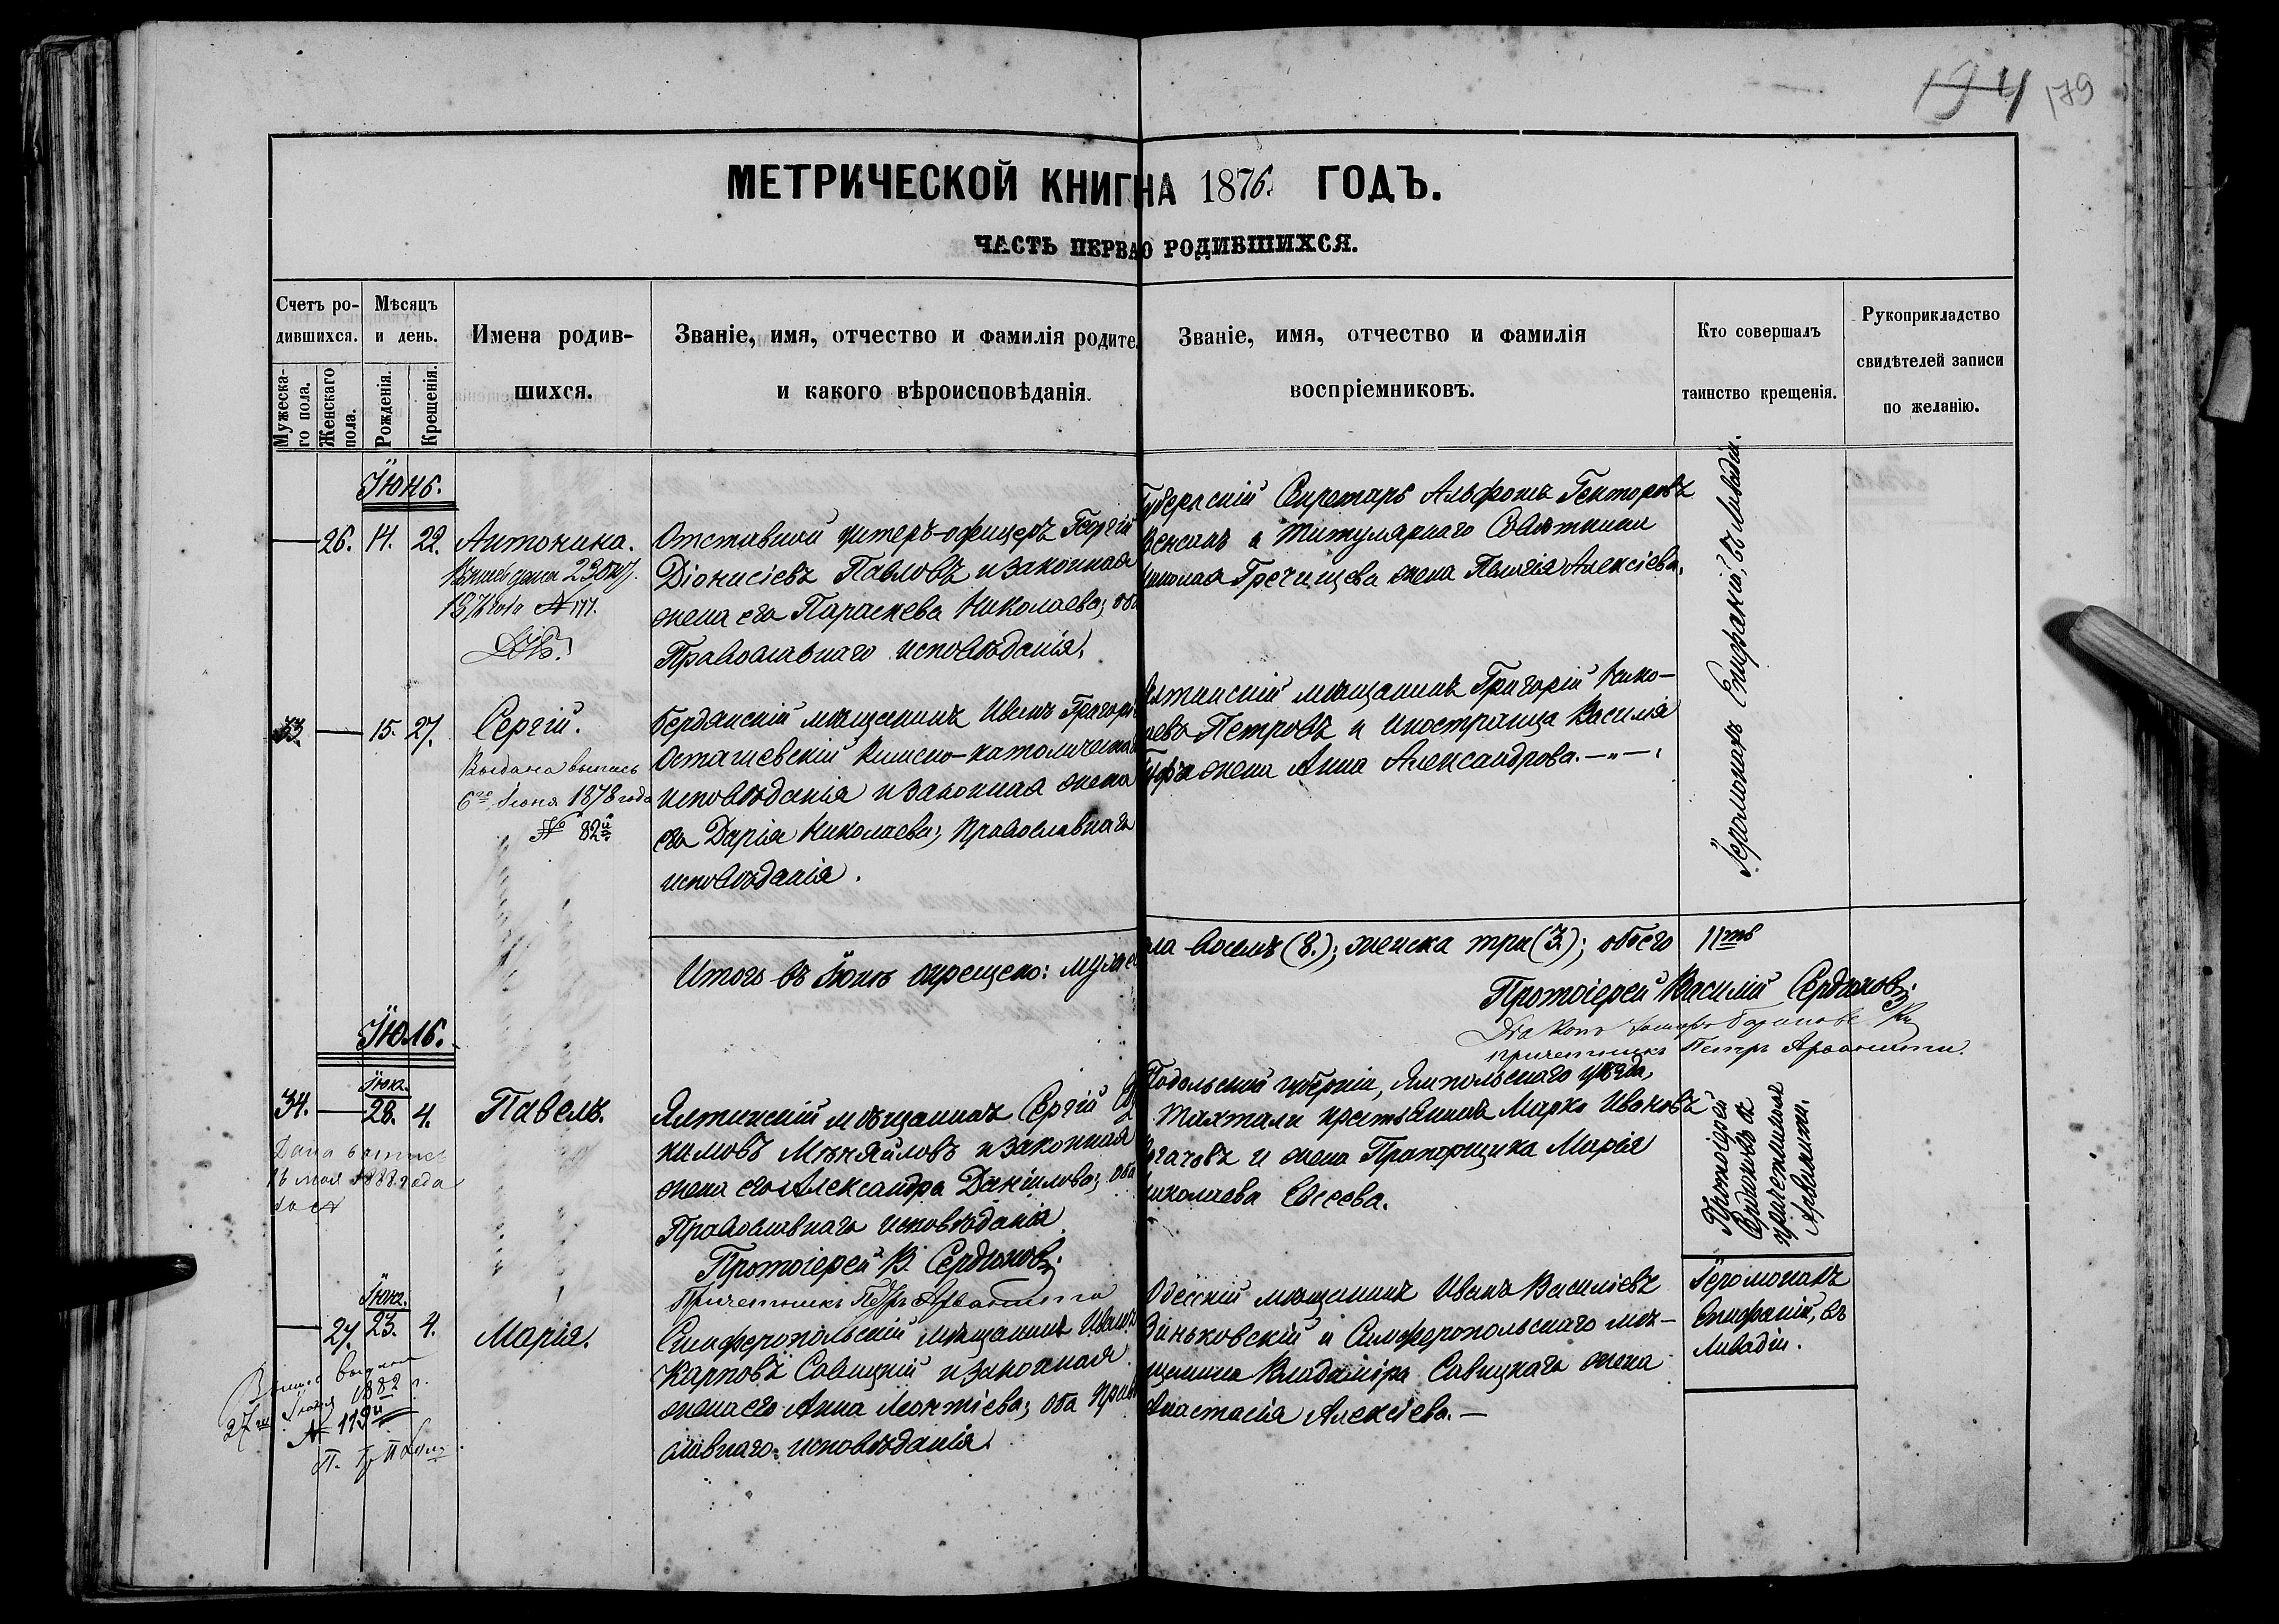 194 179
МЕТРИЧЕСКОЙ КНИГ НА 1876. ГОДЪ.
ЧАСТЬ ПЕРВА О РОДИВШИХСЯ.
Счетъ ро-
дившихся.
Мужеска-
го пола.
Женскаго
пола.
Мѣсяцъ
и день.
Рожденія.
Крещенія.
Имена родив-
шихся.
Званіе, имя, отчество и фамилія родите
и какого вѣроисповѣданія.
Званіе, имя, отчество и фамилія
воспріемниковъ.
Кто совершалъ
таинство крещенія.
Рукоприкладство
свидѣтелей записи
по желанію.
Іюнь.
26. 14. 22. Антонина.
№ 177.
Отставной унтеръ-офицеръ Георгій
Діонисіевъ Павловъ и законная
жена его Параскева Николаева; оба
Православнаго исповѣданія.
Губернскій Секретарь Альфонъ Гекторовъ
и Титулярнаго Совѣтника
Николая Гречищева жена Пелагія Алексіева.
Іеромонахъ Епифаній, въ Ливадіи.
33. 15. 27. Сергій.
Выдана выпись
6го Іюня 1878 года
№ 82й
Бердянскій мѣщанинъ Иванъ Григорь
Осташевскій Римско-католическа
исповѣданія и законная жена
его Дарія Николаева, православнаго
исповѣданія.
Ялтинскій мѣщанинъ Григорій Нико-
аевъ Петровъ и иностранца Василія
жена Анна Александрова.
Итого въ Іюнѣ окрещено: мужес
ола восемь (8.); женска три (3.); обоего 11ть
Протоіерей Василій Сердюковъ.
Діаконъ
причетникъ Петръ Арванити.
Іюль.
34. Іюн. 28. 4. Павелъ.
Дана выпись
16 мая 1888 года
Ялтинскій мѣщанинъ Сергій
кимовъ Михайловъ и законная
жена его Александра Даніилова; оба
Православнаго исповѣданія.
Протоіерей В. Сердюковъ.
Причетникъ Петръ Арванити
Подольской губерніи, Ямпольскаго уѣзда,
крестьянинъ Марко Ивановъ
и жена Прапорщика Марія
Николаева Евсеева.
Протоіерей
Сердюковъ съ
причетникомъ
Арванити.
27. Іюн. 23. 4. Марія.
27го Іюня 1882 г.
№ 119й
Симферопольскій мѣщанинъ Иванъ
Карповъ Савицкій и законная
жена его Анна Леонтіева; оба Прав
славнаго исповѣданія.
Одесскій мѣщанинъ Иванъ Василіевъ
Зиньковскій и Симферопольскаго мѣ-
щанина Владиміра Савицкаго жена
Анастасія Алексіева.
Іеромонахъ
Епифаній, въ
Ливадіи.